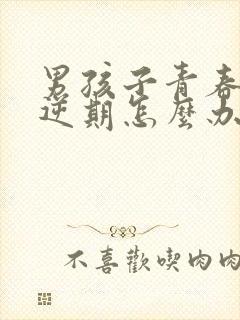 男孩子青春
逆期怎麼办
不喜歡喫肉肉